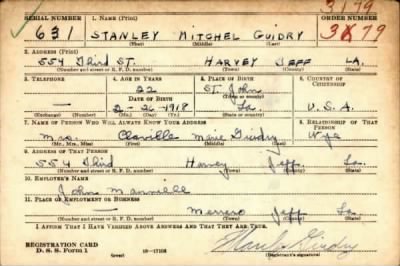 3179
SERIAL NUMBER 1. NAME (Print) ORDER NUMBER
631 STANLEY MITCHEL GUIDRY 3179
(First) (Middle) (Last)
2. ADDRESS (Print)
554 Third ST. HARVEY JEFF LA.
(Number and street or R. F. D. number) (Town) (County) (State)
3. TELEPHONE 4. AGE IN YEARS 5. PLACE OF BIRTH 6. COUNTRY OF CITIZENSHIP
22 St. John
DATE OF BIRTH (Town or county)
2-26-1918 La. U.S.A.
(Exchange) (Number) (Mo.) (Day) (Yr.) (State or country)
7. NAME OF PERSON WHO WILL ALWAYS KNOW YOUR ADDRESS 8. RELATIONSHIP OF THAT PERSON
Mrs. Marie Guidry Wife
(Mr., Mrs., Miss) (First) (Middle) (Last)
9. ADDRESS OF THAT PERSON
554 Third Harvey Jeff. La.
(Number and street or R. F. D. number) (Town) (County) (State)
10. EMPLOYER'S NAME
John
11. PLACE OF EMPLOYMENT OR BUSINESS
Marrero Jeff La
(Number and street or R. F. D. number) (Town) (County) (State)
I AFFIRM THAT I HAVE VERIFIED ABOVE ANSWERS AND THAT THEY ARE TRUE.
REGISTRATION CARD
D. S. S. Form 1 (over) 16-17105 Guidry
(Registrant's signature)